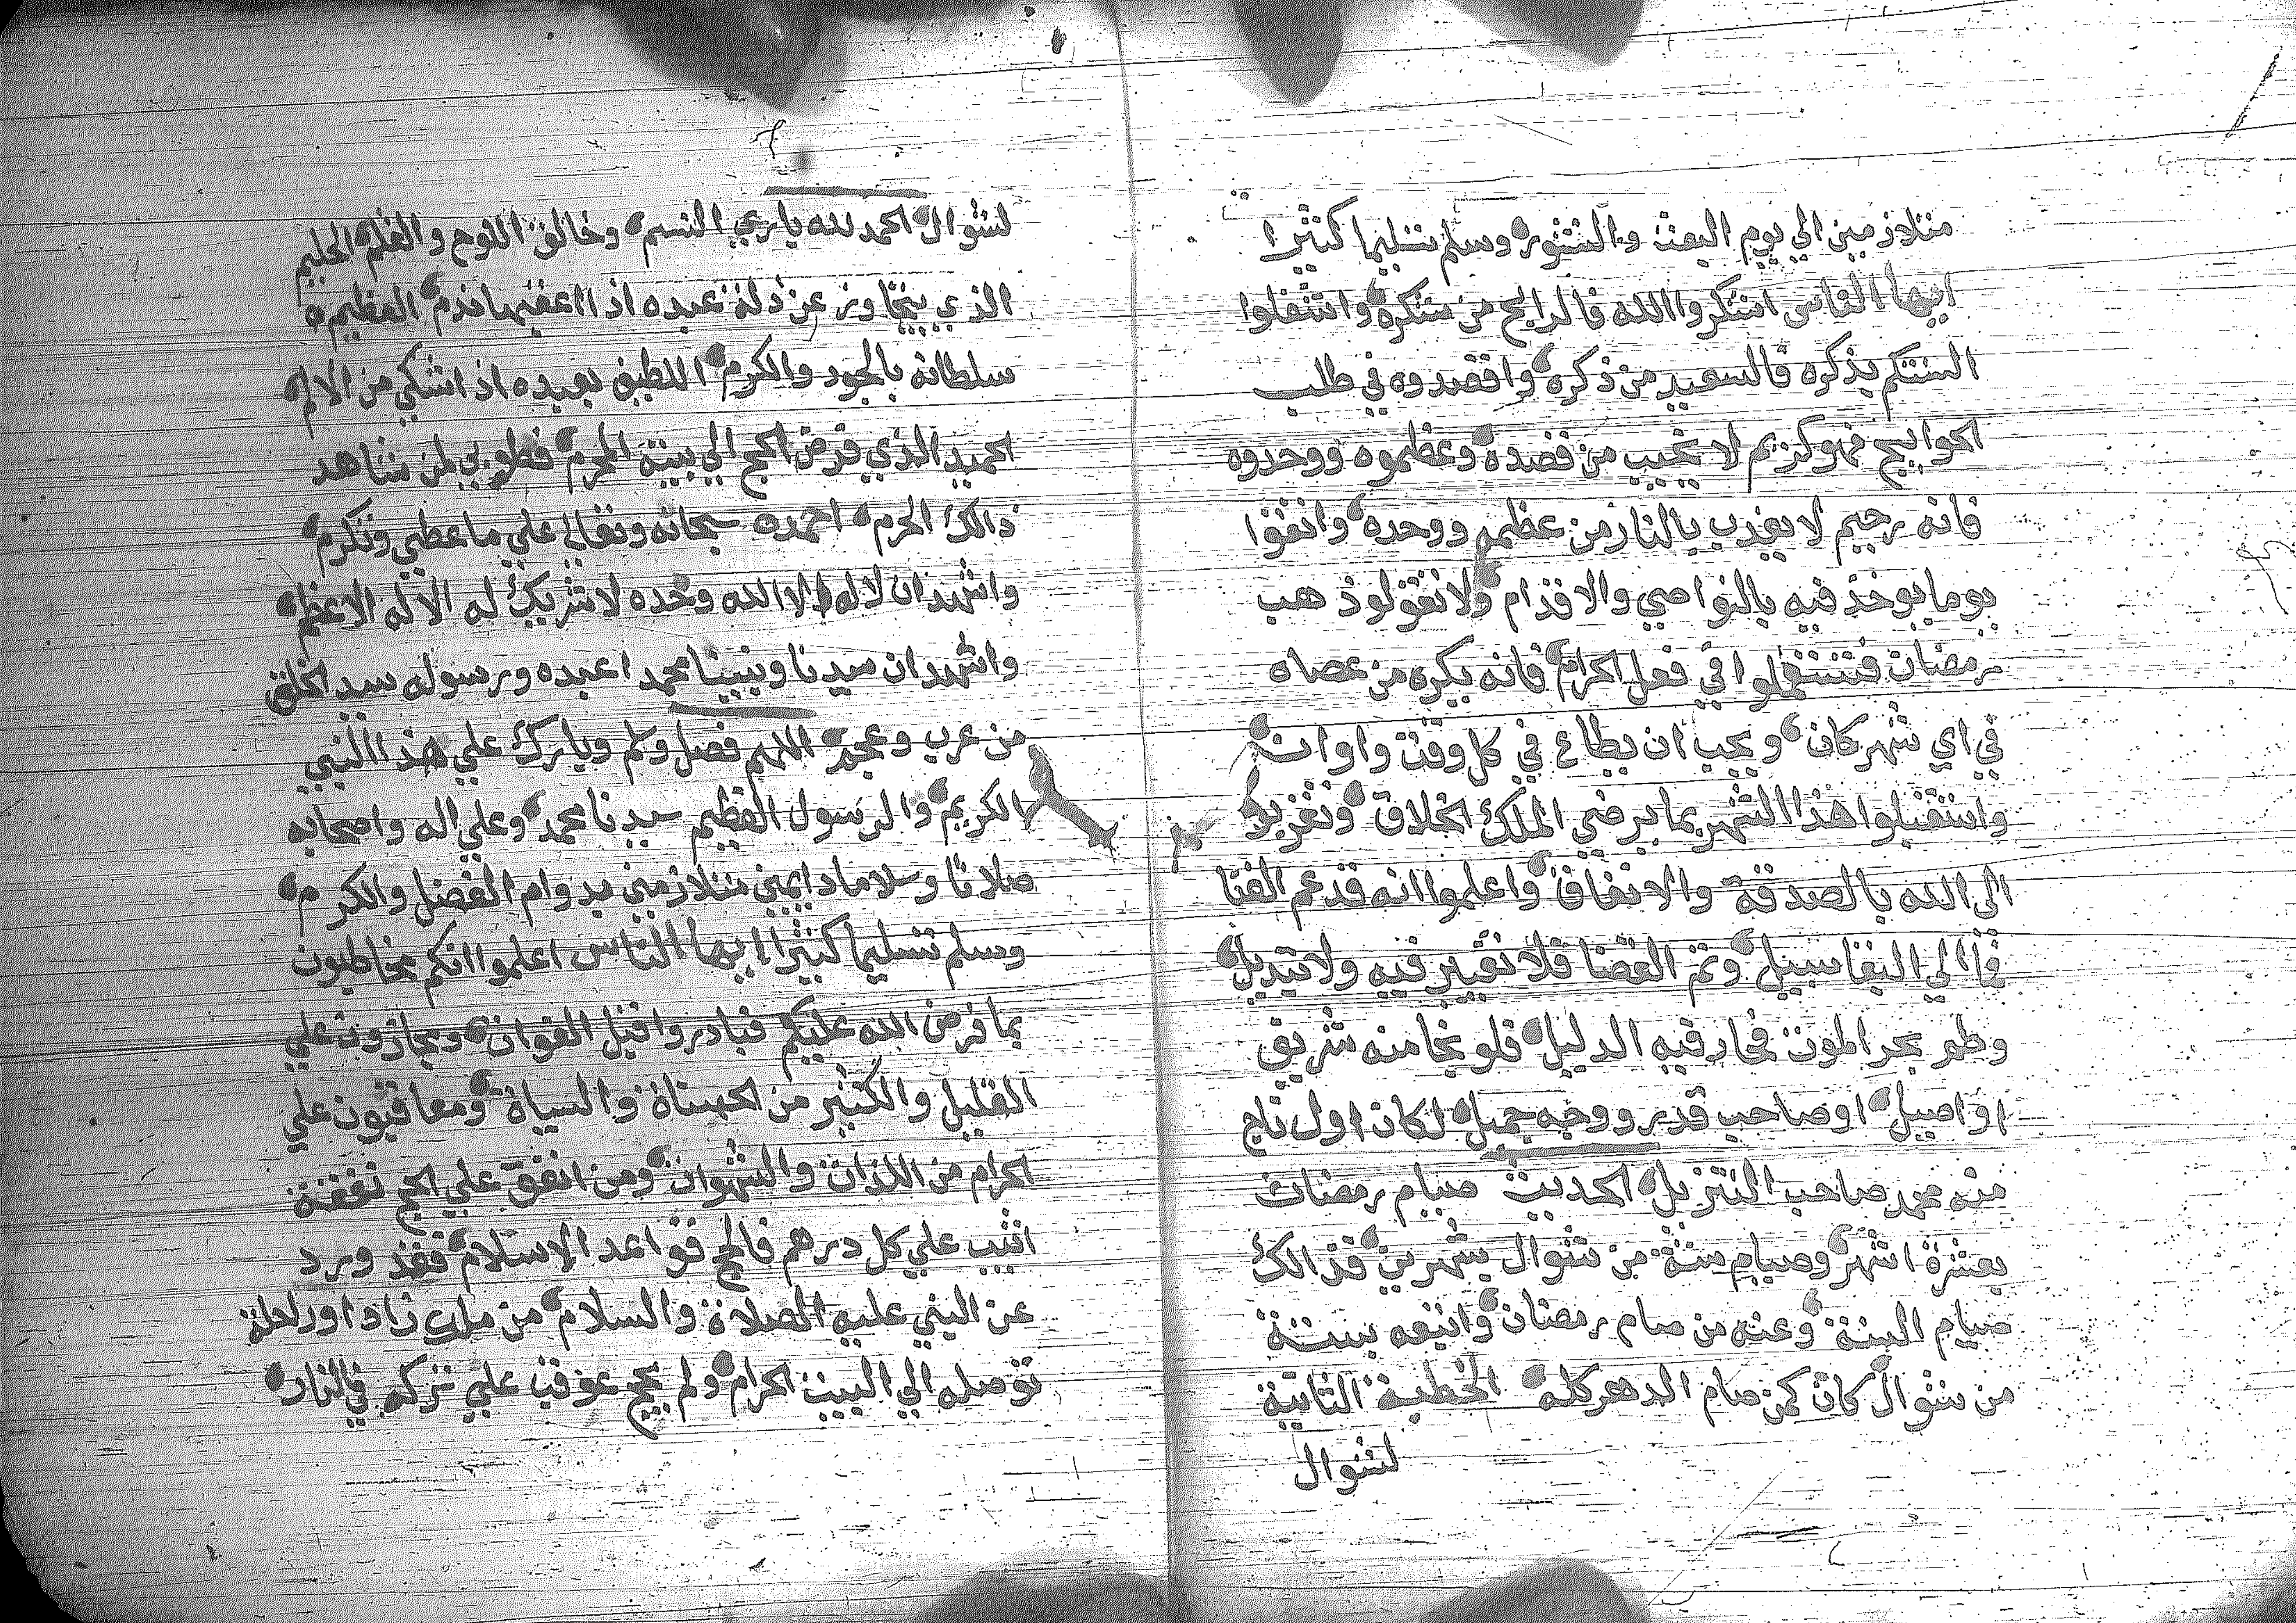 متلازمين الي يوم البعث والنشور وسلم تسليما كثيرا
ايها الناس اشكروا الله فالرابح من شكره واشغلوا
السنتكم بذكره فالسعيد من ذكره واقصدوه في طلب
الحوايج فهو كريم لا يخيب من قصده وعظموه ووحدوه
فانه رحيم لا يعذب بالنار من عظمه ووحده واتقوا
يوما يوخذ فيه بالنواصي والاقدام ولا تقولو ذهب
رمضان فتشتغلوا في فعل الحرام فانه يكره من عصاه
في اي شهر كان ويجب ان يطاع في كل وقت واوان
واستقبلوا هذا الشهر بما يرضي الملك الخلاق وتقربو
الى الله بالصدقة والانفاق واعلموا انه قد عم الفنا
فما الي البقا سبيل وتم القضا فلا تغيير فيه ولا تبديل
وطم بحر الموت فحار فيه الدليل فلو نجا منه شريق
او اصيل او صاحب قدر ووجه جميل لكان اول ناج
منه محمد صاحب التنزيل الحديث صيام رمضان
بعشرة اشهر وصيام ستة من شوال بشهرين فذالك
صيام السنة وعنه من صام رمضان واتبعه بستة
من شوال كان كمن صام الدهر كله الخطبة الثانية
لشوال
لشوال الحمد لله باري النسم وخالق اللوح والقلم الحليم
الذي يتجاوز عن ذلة عبده اذا اعقبها ندم العظيم
سلطانه بالجود والكرم اللطيف بعبده اذ اشتكي من الالم
الحميد الذي فرض الحج الي بيته المحرم فطوبي لمن شاهد
ذالك الحرم احمده سبحانه وتعالي علي ما عطي وتكرم
واشهد ان لا اله الا الله وحده لا شريك له الاله الاعظم
واشهد ان سيدنا ونبينا محمدا عبده ورسوله سيد الخلق
من عرب وعجم اللهم فصل وسلم وبارك علي هذا النبي
الكريم والرسول العظيم سيدنا محمد وعلي اله واصحابه
صلاتا وسلاما دايمين متلازمين بدوام الفضل والكرم
وسلم تسليما كثيرا ايها الناس اعلموا انكم مخاطبون
بما فرض الله عليكم فبادروا قبل الفوات ومجازون علي
القليل والكثير من الحسناة والسياة ومعاقبون علي
الحرام من اللذات والشهوات ومن انفق علي الحج نفقة
اثيب علي كل درهم فالحج قواعد الاسلام فقد ورد
عن النبي عليه الصلاة والسلام من ملك زادا وراحلة
توصله الي البيت الحرام ولم يحج عوقب علي تركه في النار